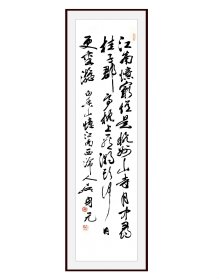 江南憶最憶是杭州山寺月中尋
桂子郡亭枕上看潮頭何日
更重游 白香山憶江南